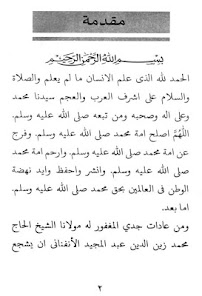 مقدمة
بسم الله الرحمن الرحيم
الحمد لله الذى علم الانسان ما لم يعلم والصلاة
والسلام على اشرف العرب والعجم سيدنا محمد
وعلى اله وصحبه ومن تبعه صلى الله عليه وسلم.
اللهُمَّ اصلح امة محمد صلى الله عليه وسلم. وفرج
عن امة محمد صلى الله عليه وسلم. وارحم امة محمد
صلى الله عليه وسلم. وانشر واحفظ وايد نهضة
الوطن فى العالمين بحق محمد صلى الله عليه وسلم.
اما بعد.
ومن عادات جدي المغفور له مولانا الشيخ الحاج
محمد زين الدين عبد المجيد الأنفنانى ان يشجع
٢